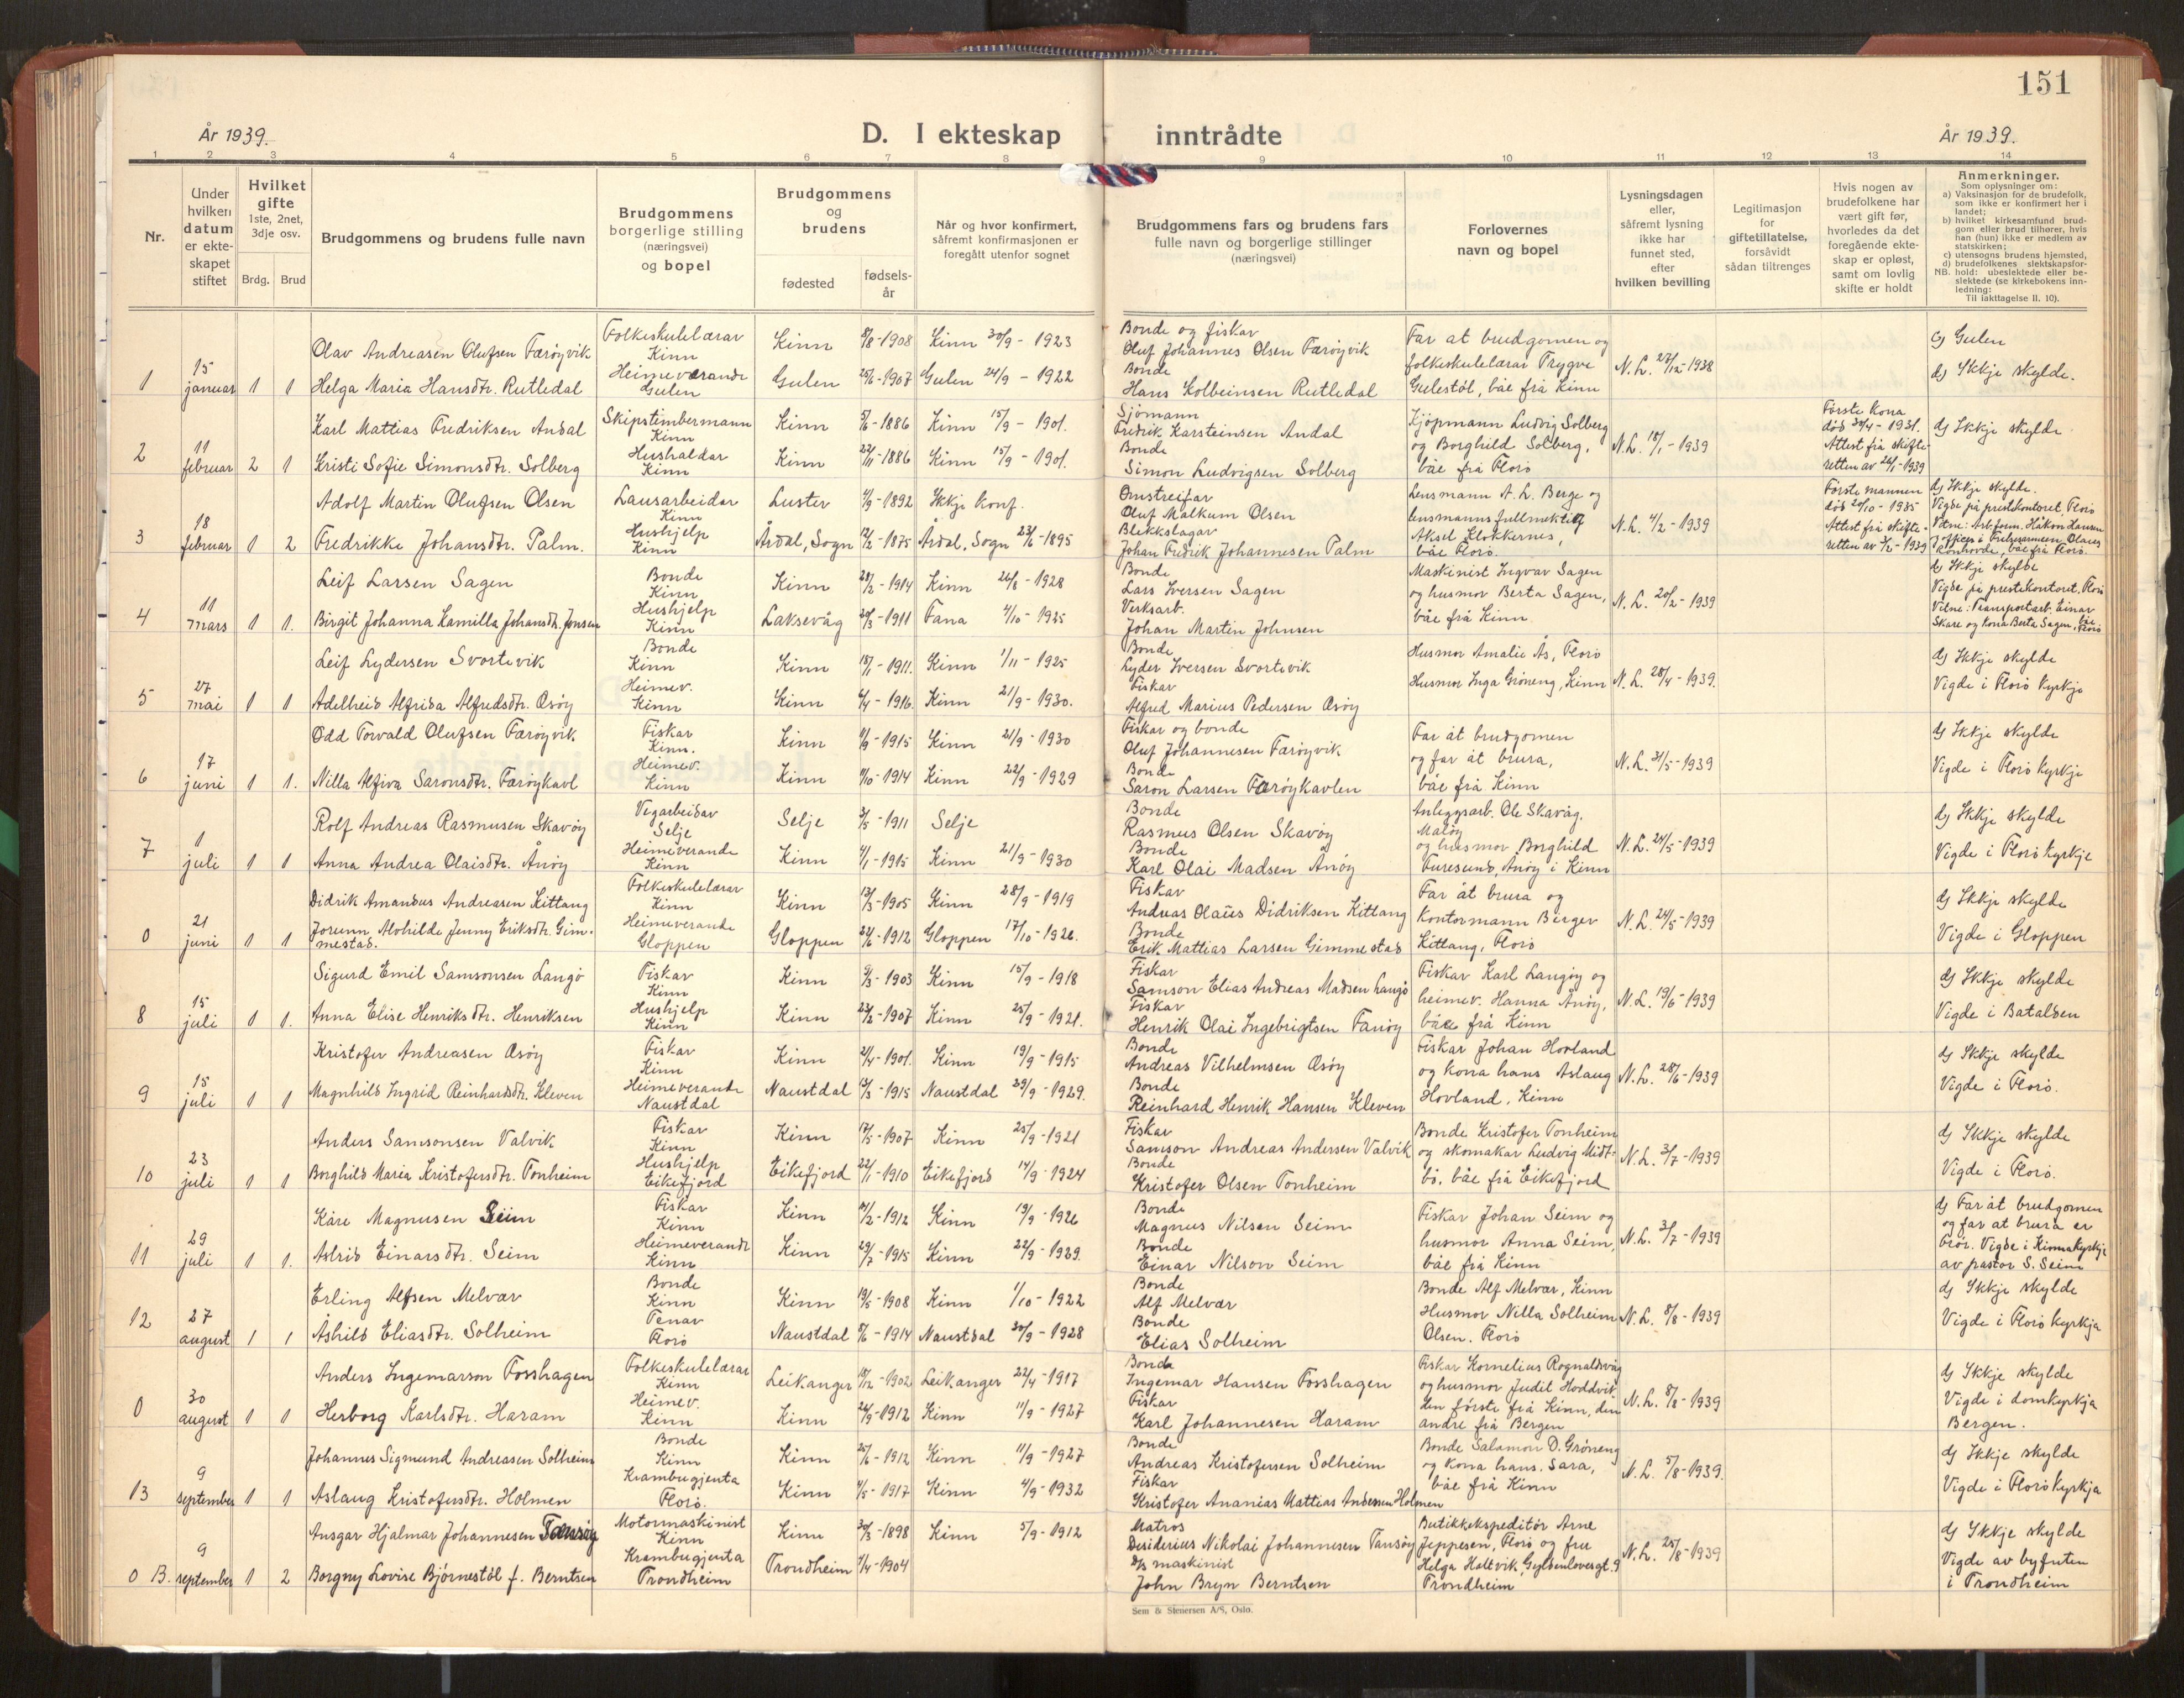 151
År 1939.
D. I ekteskap inntrådte
År 1939.
1 2 3 4 5 6 7 8 9 10 11 12 13 14
Nr.
Under hvilken datum er ekteskapet stiftet
Hvilket gifte
1ste, 2net, 3dje osv.
Brdg. Brud
Brudgommens og brudens fulle navn
Brudgommens borgerlige stilling (næringsvei) og bopel
Brudgommens og brudens
fødested
fødselsår
Når og hvor konfirmert, såfremt konfirmasjonen er foregått utenfor sognet
Brudgommens fars og brudens fars fulle navn og borgerlige stillinger (næringsvei)
Forlovernes navn og bopel
Lysningsdagen eller, såfremt lysning ikke har funnet sted, efter hvilken bevilling
Legitimasjon for giftetillatelse, forsåvidt sådan tiltrenges
Hvis nogen av brudefolkene har vært gift før, hvorledes da det foregående ekteskap er opløst, samt om lovlig skifte er holdt
Anmerkninger.
Som oplysninger om:
a) Vaksinasjon for de brudefolk, som ikke er konfirmert her i landet;
b) hvilket kirkesamfund brudgom eller brud tilhører, hvis han (hun) ikke er medlem av statskirken;
c) utensogns brudens hjemsted,
d) brudefolkenes slektskapsforhold: ubeslektede eller beslektede (se kirkebokens innledning:
NB.
Til iakttagelse II. 10).
1 15 januar 1 1
Olav Andreasen Olufsen Færøyvik
Folkeskulelærar Kinn
Kinn 8/8-1908 Kinn 30/9-1923
Helga Maria Hansdtr. Rutledal
Heimeverande Gulen
Gulen 25/6-1907 Gulen 24/9-1922
Bonde og fiskar
Oluf Johannes Olsen Færøyvik
Bonde
Hans Kolbeinsen Rutledal
Far åt brudgomen og folkeskulelærar Trygve Gulestøl, båe frå Kinn
N.L. 27/12-1938
c) Gulen
d) Ikkje skylde.
2 11 februar 2 1
Karl Mattias Fredriksen Andal
Skipstimbermann Kinn
Kinn 5/6-1886 Kinn 15/9-1901.
Kristi Sofie Simonsdtr. Solberg
Hushaldar Kinn
Kinn 22/11-1886 Kinn 15/9-1901.
Sjømann
Fredrik Karsteinsen Andal
Bonde
Simon Ludvigsen Solberg
Kjøpmann Ludvig Solberg og Borghild Solberg, båe frå Florø
N.L. 18/1-1939
Første kona død 30/4-1931. Attest frå skifteretten av 26/1-1939
d) Ikkje skylde
3 18 februar 1 2
Adolf Martin Olufsen Olsen
Lausarbeidar Kinn
Luster 4/9-1892 Ikkje konf.
Fredrikke Johansdtr. Palm.
Hushjelp Kinn
Årdal, Sogn 12/2-1875 Årdal, Sogn 23/6-1895
Omstreifar
Oluf Malkum Olsen
Blekkslagar
Johan Fredrik Johannesen Palm
Lensmann A. L. Berge og lensmannsfullmektig Aksel Klokkernes, båe Florø.
N.L. 4/2-1939
Første mannen død 20/10-1935 Attest frå skifteretten av 3/2-1939
d) Ikkje skylde.
Vigde på prestekontoret, Florø
Vitne: Arb.form. Håkon Hansen
båe frå Florø.
4 11 mars 1 1.
Leif Larsen Sagen
Bonde Kinn
Kinn 28/2-1914 Kinn 26/8-1928
Birgit Johanna Kamilla Johansdtr. Jonsen
Hushjelp Kinn
Laksevåg 20/3-1911 Fana 4/10-1925
Bonde
Lars Iversen Sagen
Verksarb.
Johan Martin Johnsen
Maskinist Ingvar Sagen og husmor Berta Sagen, båe frå Kinn
N.L. 20/2-1939
d) Ikkje skylde
Vigde på prestekontoret, Florø
Vitne: Transportarb. Einar
Skare og kona Berta Sagen, båe Florø
5 27 mai 1 1
Leif Lydersen Svortevik
Bonde Kinn
Kinn 18/1-1911. Kinn 1/11-1925
Adelheid Alfrida Alfredsdtr. Osøy
Heimev. Kinn
Kinn 6/4-1916. Kinn 21/9-1930.
Bonde
Lyder Iversen Svortevik
Fiskar
Alfred Marius Pedersen Osøy
Husmor Amalie Ås, Florø
Husmor Inga Grøneng, Kinn
N.L. 28/4-1939.
d) Ikkje skylde
Vigde i Florø kyrkje
6 17 juni 1 1.
Odd Torvald Olufsen Færøyvik
Fiskar Kinn.
Kinn 9/9-1915 Kinn 21/9-1930
Nilla Alfiva Saronsdtr. Færøykavl
Heimev. Kinn
Kinn 11/10-1914 Kinn 22/9-1929
Fiskar og bonde
Oluf Johannesen Færøyvik
Bonde
Saron Larsen Færøykavlen
Far åt brudgomen og far åt brura, båe frå Kinn
N.L. 31/5-1939
d) Ikkje skylde
Vigde i Florø kyrkje
7 1 juli 1 1
Rolf Andreas Rasmusen Skavøy
Vegarbeidar Selje
Selje 3/5-1911 Selje
Anna Andrea Olaisdtr. Ånøy
Heimeverande Kinn
Kinn 4/1-1915 Kinn 21/9-1930
Bonde
Rasmus Olsen Skavøy
Bonde
Karl Olai Madsen Anøy
Anleggsarb. Ole Skavåg. Måløy og husmor Borghild Furesund, Anøy i Kinn
N.L. 24/5-1939
d) Ikkje skylde
Vigde i Florø kyrkje
0 21 juni 1 1
Didrik Amandus Andreasen Kittang
Folkeskulelærar Kinn
Kinn 13/3-1905 Kinn 28/9-1919
Jorunn Alvhilde Jenny Eriksdtr. Gimmestad.
Heimeverande Gloppen
Gloppen 24/6-1912 Gloppen 17/10-1926.
Fiskar
Andreas Olaus Didriksen Kittang
Bonde
Erik Mattias Larsen Gimmestad
Far åt brura og kontormann Berger Kittang, Florø
N.L. 24/5-1939
d) Ikkje skylde
Vigde i Gloppen
8 15 juli 1 1.
Sigurd Emil Samsonsen Langø
Fiskar Kinn
Kinn 9/3-1903 Kinn 15/9-1918
Anna Elise Henriksdtr. Henriksen
Hushjelp Kinn
Kinn 23/2-1907 Kinn 25/9-1921.
Fiskar
Samson Elias Andreas Madsen Langø
Fiskar
Henrik Olai Ingebrigtsen Fanøy
Fiskar Karl Langøy og heimev. Hanna Anøy, båe frå Kinn
N.L. 19/6-1939
d) Ikkje skylde
Vigde i Batalden
9 15 juli 1 1
Kristofer Andreasen Osøy
Fiskar Kinn
Kinn 2/4-1901. Kinn 19/9-1915
Magnhild Ingrid Reinhardsdtr. Kleven
Heimeverande Naustdal
Naustdal 13/3-1915 Naustdal 29/9-1929.
Bonde
Andreas Vilhelmsen Osøy
Bonde
Reinhard Henrik Hansen Kleven
Fiskar Johan Hovland og kona hans Aslaug Hovland, Kinn
N.L. 28/6-1939
d) Ikkje skylde
Vigde i Florø.
10 23 juli 1 1
Anders Samsonsen Valvik
Fiskar Kinn
Kinn 17/5-1907 Kinn 25/9-1921
Borghild Maria Kristofersdtr. Tonheim
Hushjelp Eikefjord
Eikefjord 22/1-1910 Eikefjord 14/9-1924
Fiskar
Samson Andreas Andersen Valvik
Bonde
Kristofer Olsen Tonheim
Bonde Kristofer Tonheim og skomakar Ludvig Midtbø, båe frå Eikefjord
N.L. 3/7-1939
d) Ikkje skylde
Vigde i Florø.
11 29 juli 1 1.
Kåre Magnusen Seim
Fiskar Kinn
Kinn 21/2-1912 Kinn 19/9-1926
Astrid Einarsdtr. Seim
Heimeverande Kinn
Kinn 29/7-1915 Kinn 22/9-1929.
Bonde
Magnus Nilsen Seim
Bonde
Einar Nilson Seim
Fiskar Johan Seim og husmor Anna Seim, båe frå Kinn
N.L. 3/7-1939
d) Far åt brudgomen og far åt brura er brør. Vigde i Kinnakyrkje av pastor S. Seim
12 27 august 1 1
Erling Alfsen Melvær
Bonde Kinn
Kinn 19/5-1908 Kinn 1/10-1922
Åshild Eliasdtr. Solheim
Tenar Florø
Naustdal 5/6-1914 Naustdal 30/9-1928
Bonde
Alf Melvær
Bonde
Elias Solheim
Bonde Alf Melvær, Kinn
Husmor Nilla Solheim Olsen. Florø
N.L. 8/8-1939
d) Ikkje skylde
Vigde i Florø kyrkja
0 30 august 1 1
Anders Ingemarson Fosshagen
Folkeskulelærar Kinn
Leikanger 18/12-1902 Leikanger 22/4-1917
Herborg Karlsdtr. Haram
Heimev. Kinn
Kinn 24/9-1912 Kinn 11/9-1927
Bonde
Ingemar Hansen Fosshagen
Fiskar
Karl Johannesen Haram
Fiskar Kornelius Rognaldsvåg og husmor Judit Hoddvik, den første frå Kinn, den andre frå Bergen
N.L. 8/8-1939
d) Ikkje skylde
Vigde i domkyrkja Bergen.
13 9 september 1 1
Johannes Sigmund Andreasen Solheim
Bonde Kinn
Kinn 25/6-1912 Kinn 11/9-1927
Aslaug Kristofersdtr. Holmen
Krambugjenta Florø.
Kinn 4/5-1917 Kinn 4/9-1932
Bonde
Andreas Kristofersen Solheim
Fiskar
Kristofer Ananias Mattias Andersen Holmen
Bonde Salamon D. Grøneng og kona hans. Sara, båe frå Kinn
N.L. 5/8-1939.
d) Ikkje skylde
Vigde i Florø kyrkja
0 B. 9 september 1 2
Ansgar Hjalmar Johannesen Tansøy
Motormaskinist Kinn
Kinn 30/3-1898 Kinn 5/9-1912
Borgny Lovise Bjørnestøl f. Berntsen
Krambugjenta Trondheim
Trondheim 7/4-1904
Matros
Desiderius Nikolai Johannesen Tansøy
D/s maskinist
John Bryn Berntsen
Butikkekspeditør Arne Jeppesen, Florø og fru Helga Holtvik, Gyldenløvesgt. 9 Trondheim
N.L. 25/8-1939
d) Ikkje skylde
Vigde av byfuten i Trondheim
Sem & Stenersen A/S, Oslo.